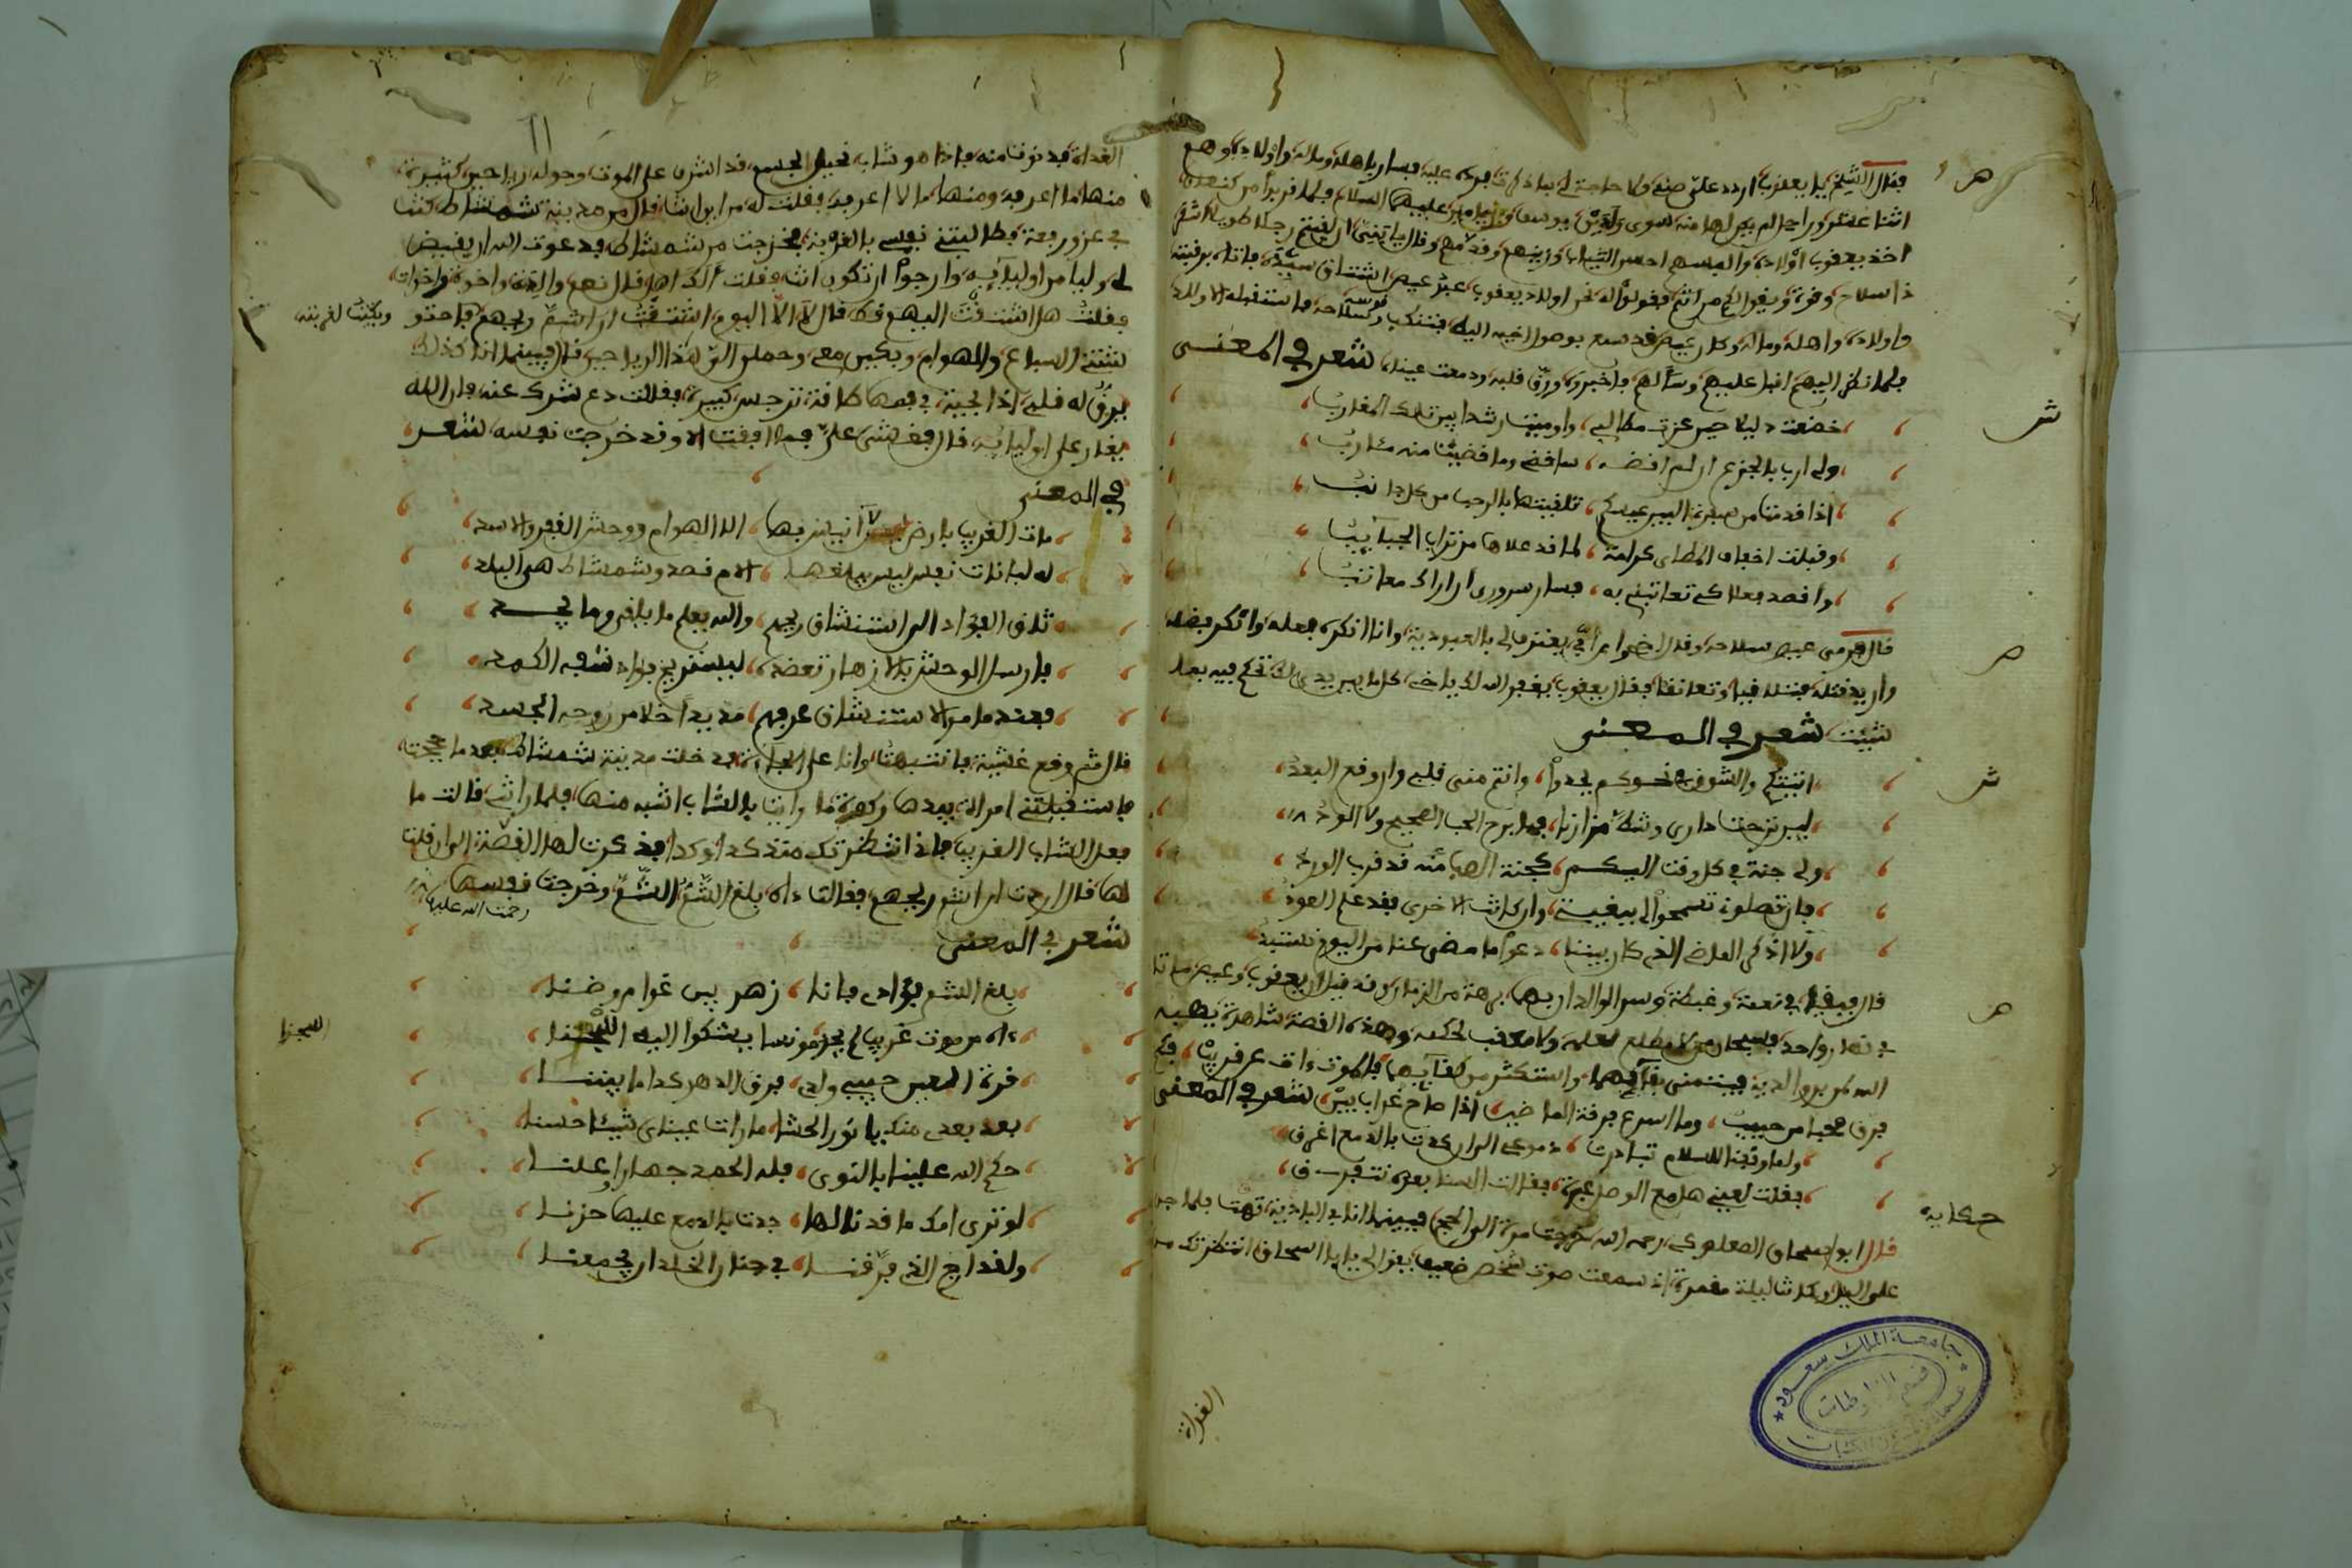 فقال الشيخ يا يعقوب اردد علي صنمي ولا حاجة لي بما ذكرت فرده عليه فسار باهله وماله واولاده وهم
اثنا عشر وراحيل لم يجر لها منه سوى ولدين يوسف وبنيامين عليهما السلام فلما قربوا من كنعان
اخذ يعقوب اولاده والبسهم احسن الثياب وزينهم وقدمهم وقال يا بني ان لقيتم رجلا طويلا اشقر
ذا سلاح وفرة ويقول لكم من انتم فقولوا له نحن اولاد يعقوب عبد عيص اشتاق سيده فاتاه برقيته
واولاده واهله وماله وكان عيص قد سمع بوصول اخيه اليه فتنكب قوسه وسلاحه فاستقبله الاولاد
فلما نظر اليهم اقبل عليهم وسألهم فاخبروه ورق قلبه ودمعت عيناه شعر في المعنى
خضعت دليلا حين عزت مطالبي
ولي ارب بالجزع ان لم اقضه ساقضي وما قضيت منه مئارب
اذا قدمتا من
وقبلت اخفاف المطاي كرامة لما قد علاها من تراب الحبائب
واقصد فعلا كي تعاتبني به فسار سروري ان اراك معاتب
قال فرمى عيص سلاحه وقال اخي يعترف لي بالعبودية وانا انكر فعله وانكر فضله
واريد قتله فتلاقيا وتعانقا فقال يعقوب يغفر الله لك يا اخي كل ما بين يدي لك تحكم فيه بما
شئت شعر في المعنى
اتيتكم والشوق نحوكم يحدوا وانتم منى قلبي وان وقع البعد
لين نزحت داري وشط مزارنا فما برح الحب الصحيح ولا الود
ولي جنة في كل وقت اليكم كجنة الصمآن قد قرب الورد
فان تصلوا تسمحوا لي ببغيتي وان كانت الاخرى فقد علم العود
ولا اذكر الماضي الذي كان بيننا دعوا ما مضى عنا من اليوم نستبد
قال فبقيا في نعمة وغبطة وسرا لوالدان بهما برهة من الزمان وقد قيل ان يعقوب وعيص ماتا
في نهار واحد فسبحان من لا مطلع لعلمه ولا معقب لحكمه وهذه القصة شاهدة
الله كم بر والديه فيتمنى بقآءهما والموت دات عن قريب فكم
فرق محبا من حبيب وما اسرع فرقة الماضين اذا صاح غراب بين شعر في المعنى
ولما وقفنا للسلام تبادرت دموعي الى ان كدت بالدمع اغرق
فقلت لعيني هل مع الوصل عبرة فقالت السنا بعده نتفرق
حكاية
قال ابو اسحاق الصعلوكي رحمه الله خرجت مرة الى الحج فبينما انا في البادية تهت فلما جن
علي الليل وكانت ليلة مقمرة اذ سمعت صوت شخص ضعيف يقول لي يا ابا اسحاق انتظرتك من
الغداة
الغداة فدنوت منه فاذا هو شاب نحيل الجسم قد اشرف على الموت وحوله رياحين كثيرة
منها ما اعرفه ومنها ما لا اعرفه فقلت له من اين انت قال من مدينة شمشاط كنت
في عز ورفعة فطالبتني نفسي بالغربة فخرجت من شمشاط فدعوت الله ان يقيض
لي وليا من اوليآئه وارجوا ان تكون انت فقلت الك اهل قال نعم والدة واخوة واخوات
فقلت هل اشتقت اليهم قط قال لا الا اليوم اشتقت ان اشم ريحهم فاحتو
شتني السباع والهوام وبكين معي وحملن الي هذا الرياحين قال فبينما انا كذلك
وبكيت لغربته
يرق له قلبي اذا بحية في فمها طاقة نرجس كبيرة فقالت دع شرك عنه فان الله
يغار على اوليائه قال فغشي علي فما افقت الا وقد خرجت نفسه شعر
في المعنى
مات الغريب بارض لا انيس بها الا الهوام ووحش القفر والاسد
له لبانات نفس ليس يبلغها الام قصد وشمشاط هي البلد
تاق الفؤاد الى استنشاق ريحهم والله يعلم ما يلقى وما يجد
فارسل الوحش بالازهار تعضده ليستريح فؤاد شفه الكمد
فعندما مر الاستنشاق عرفهم مديدا خلا من روحه الجسد
قال ثم وقع غشية فانتبهت وانا على الجادة فدخلت مدينة شمشاط بعد ما حججت
فاستقبلتني امراة بيدها ركوة ما رايت بالشاب اشبه منها فلما راتني قالت ما
فعل الشاب الغريب فاني انتظرتك منذ كذا وكذا فذكرت لها القصة الى ان قلت
لها قال اردت ان اشم ريحهم فقالت داه بلغ الشم الشم وخرجت نفسها
رحمت الله عليها
شعر في المعنى
بلغ الشم فؤادي فانا زهر بين غرام وضنا
داه من موت غريب لم يجد مونسا يشكوا اليه الشجنا
الشجنا
قرة العين حبيبي ولدي فرق الدهر كدا ما بيننا
بعد بعدي منك يا نور الحشا ما رات عيناي شيئا حسنا
حكم الله علينا بالنوى فله الحمد جهارا وعلنا
لو ترى امك ما قد نالها جدت بالدمع عليها حزنا
ولقد ارج الذي فرقنا في جنان الخلد ان يجمعنا
جامعة الملك سعود
قسم المخطوطات